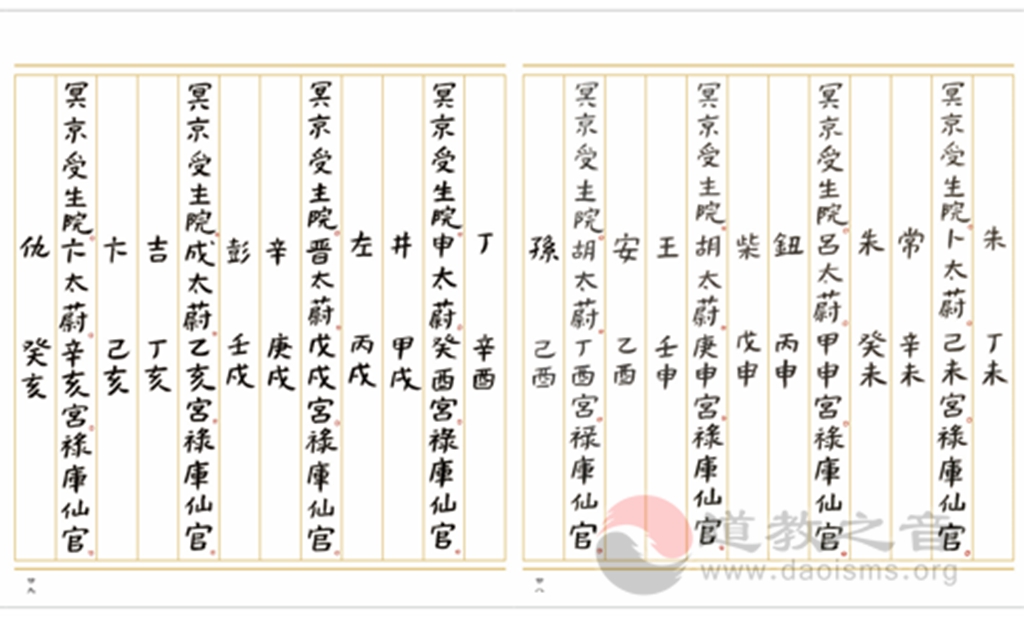 朱 丁未
冥京受生院卜太蔚己未宮祿庫仙官
常 辛未
朱 癸未
冥京受生院呂太蔚甲申宮祿庫仙官
鈕 丙申
柴 戊申
冥京受生院胡太蔚庚申宮祿庫仙官
王 壬申
安 乙酉
冥京受生院胡太蔚丁酉宮祿庫仙官
孫 己酉
丁 辛酉
冥京受生院申太蔚癸酉宮祿庫仙官
井 甲戌
左 丙戌
冥京受生院晋太蔚戊戌宮祿庫仙官
辛 庚戌
彭 壬戌
冥京受生院成太蔚乙亥宮祿庫仙官
吉 丁亥
卞 己亥
冥京受生院卞太蔚辛亥宮祿庫仙官
仇 癸亥
道教之音
www.daoisms.org